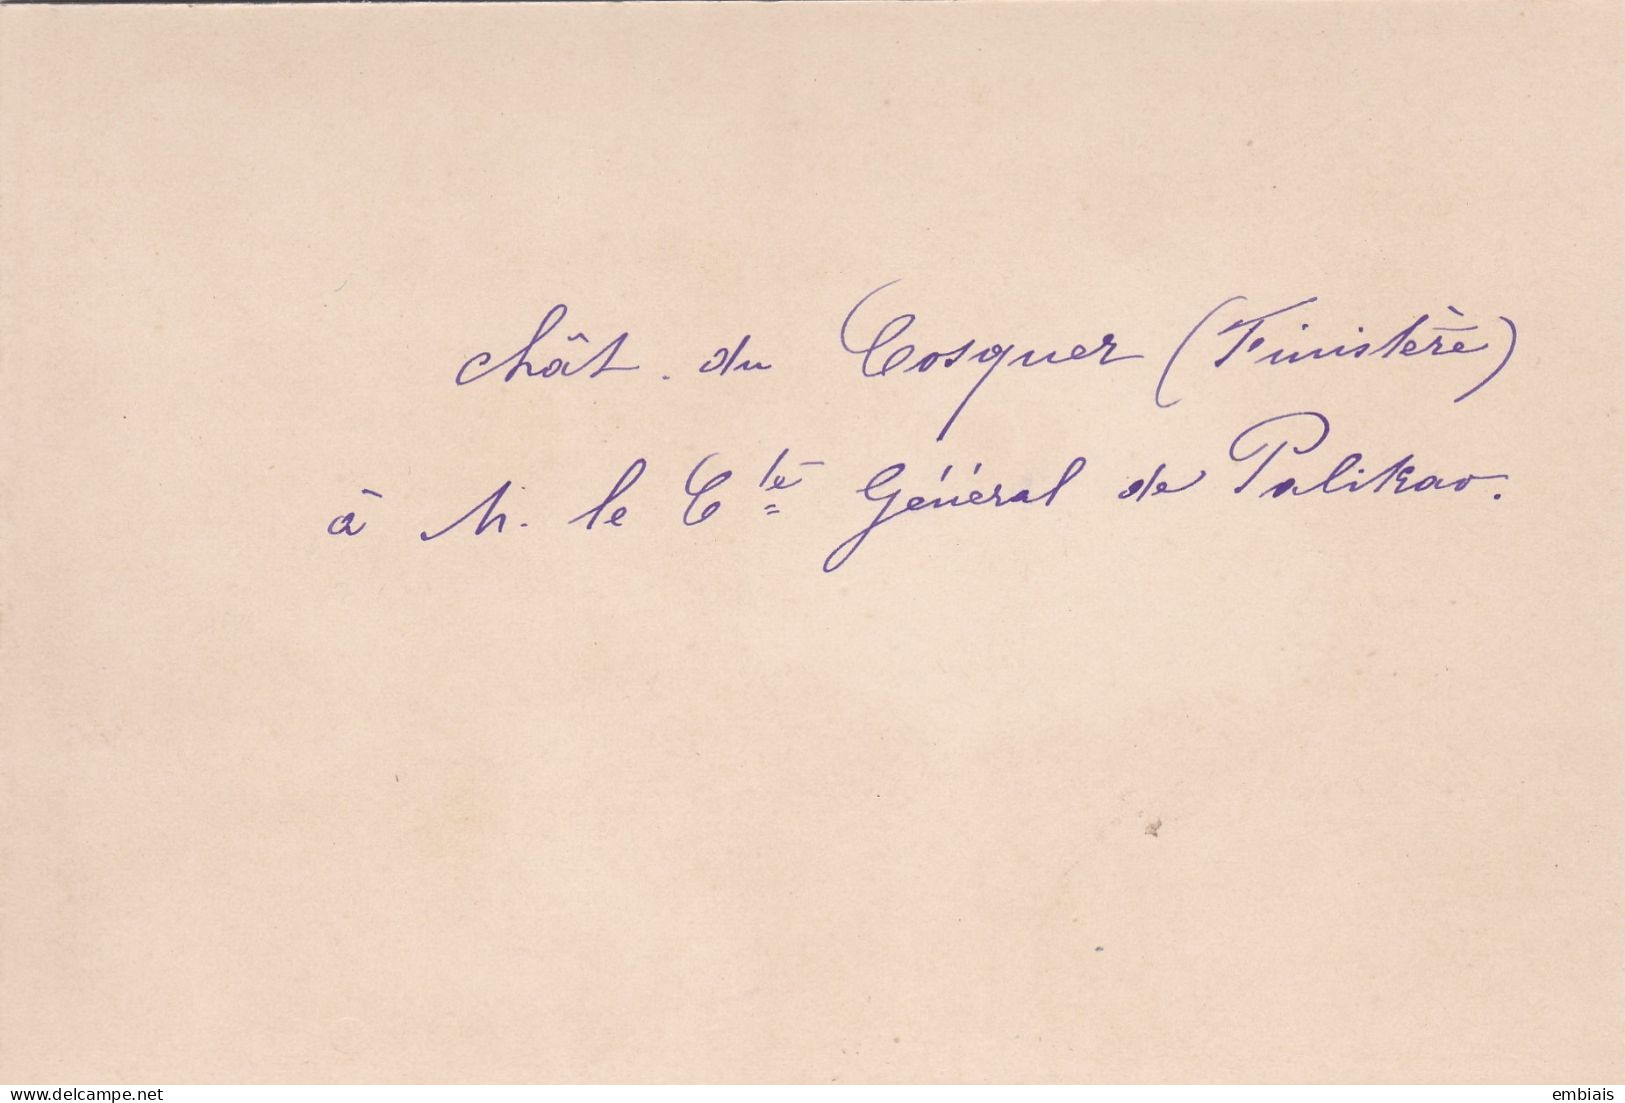 chât. du Cosquer (Finistère)
à M. le Cte Général de Palikao.
delcampe.net
embiais